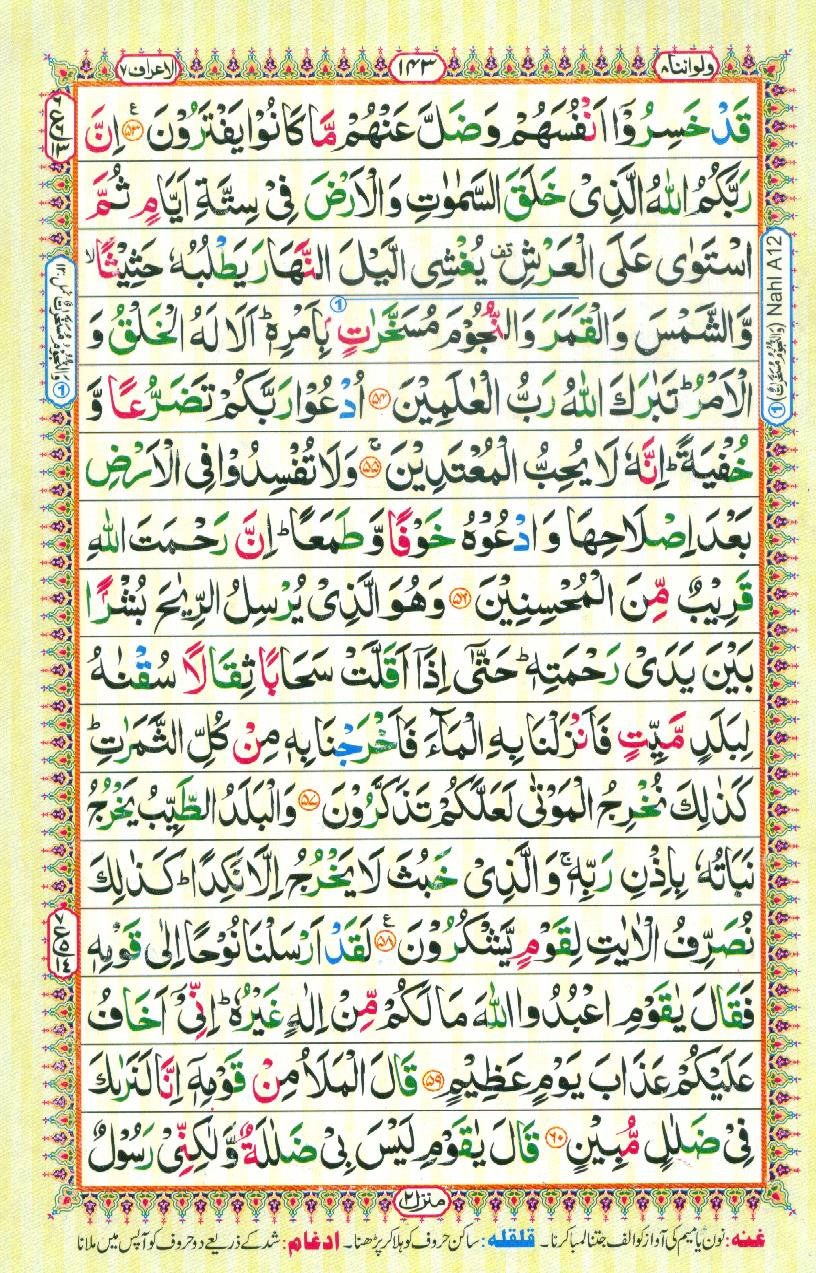 ولواننا ٨
١٤٣
الاعراف ٧
قَدْ خَسِرُوْۤا اَنْفُسَهُمْ وَضَلَّ عَنْهُمْ مَّا كَانُوْا يَفْتَرُوْنَ ﴿۵۳﴾ ع اِنَّ
رَبَّكُمُ اللّٰهُ الَّذِىْ خَلَقَ السَّمٰوٰتِ وَالْاَرْضَ فِىْ سِتَّةِ اَيَّامٍ ثُمَّ
اسْتَوٰى عَلَى الْعَرْشِ قف يُغْشِى الَّيْلَ النَّهَارَ يَطْلُبُهٗ حَثِيْثًا ۙ
وَّالشَّمْسَ وَالْقَمَرَ وَالنُّجُوْمَ مُسَخَّرٰتٍۭ بِاَمْرِهٖ ؕ اَلَا لَهُ الْخَلْقُ وَ
الْاَمْرُ ؕ تَبٰرَكَ اللّٰهُ رَبُّ الْعٰلَمِيْنَ ﴿۵۴﴾ اُدْعُوْا رَبَّكُمْ تَضَرُّعًا وَّ
خُفْيَةً ؕ اِنَّهٗ لَا يُحِبُّ الْمُعْتَدِيْنَ ﴿۵۵﴾ ۚ وَلَا تُفْسِدُوْا فِى الْاَرْضِ
بَعْدَ اِصْلَاحِهَا وَادْعُوْهُ خَوْفًا وَّطَمَعًا ؕ اِنَّ رَحْمَتَ اللّٰهِ
قَرِيْبٌ مِّنَ الْمُحْسِنِيْنَ ﴿۵۶﴾ وَهُوَ الَّذِىْ يُرْسِلُ الرِّيٰحَ بُشْرًا
بَيْنَ يَدَىْ رَحْمَتِهٖ ؕ حَتّٰۤى اِذَاۤ اَقَلَّتْ سَحَابًا ثِقَالًا سُقْنٰهُ
لِبَلَدٍ مَّيِّتٍ فَاَنْزَلْنَا بِهِ الْمَآءَ فَاَخْرَجْنَا بِهٖ مِنْ كُلِّ الثَّمَرٰتِ ؕ
كَذٰلِكَ نُخْرِجُ الْمَوْتٰى لَعَلَّكُمْ تَذَكَّرُوْنَ ﴿۵۷﴾ وَالْبَلَدُ الطَّيِّبُ يَخْرُجُ
نَبَاتُهٗ بِاِذْنِ رَبِّهٖ ۚ وَالَّذِىْ خَبُثَ لَا يَخْرُجُ اِلَّا نَكِدًا ؕ كَذٰلِكَ
نُصَرِّفُ الْاٰيٰتِ لِقَوْمٍ يَّشْكُرُوْنَ ﴿۵۸﴾ ع لَقَدْ اَرْسَلْنَا نُوْحًا اِلٰى قَوْمِهٖ
فَقَالَ يٰقَوْمِ اعْبُدُوا اللّٰهَ مَا لَكُمْ مِّنْ اِلٰهٍ غَيْرُهٗ ؕ اِنِّىْۤ اَخَافُ
عَلَيْكُمْ عَذَابَ يَوْمٍ عَظِيْمٍ ﴿۵۹﴾ قَالَ الْمَلَاُ مِنْ قَوْمِهٖۤ اِنَّا لَنَرٰٮكَ
فِىْ ضَلٰلٍ مُّبِيْنٍ ﴿۶۰﴾ قَالَ يٰقَوْمِ لَيْسَ بِىْ ضَلٰلَةٌ وَّلٰكِنِّىْ رَسُوْلٌ
① Nahl A12
منزل ٢
غنہ: نون یا میم کی آواز کو الف جتنا لمبا کرنا۔ قلقلہ: ساکن حروف کو ہلا کر پڑھنا۔ ادغام: شد کے ذریعے دو حروف کو آپس میں ملانا